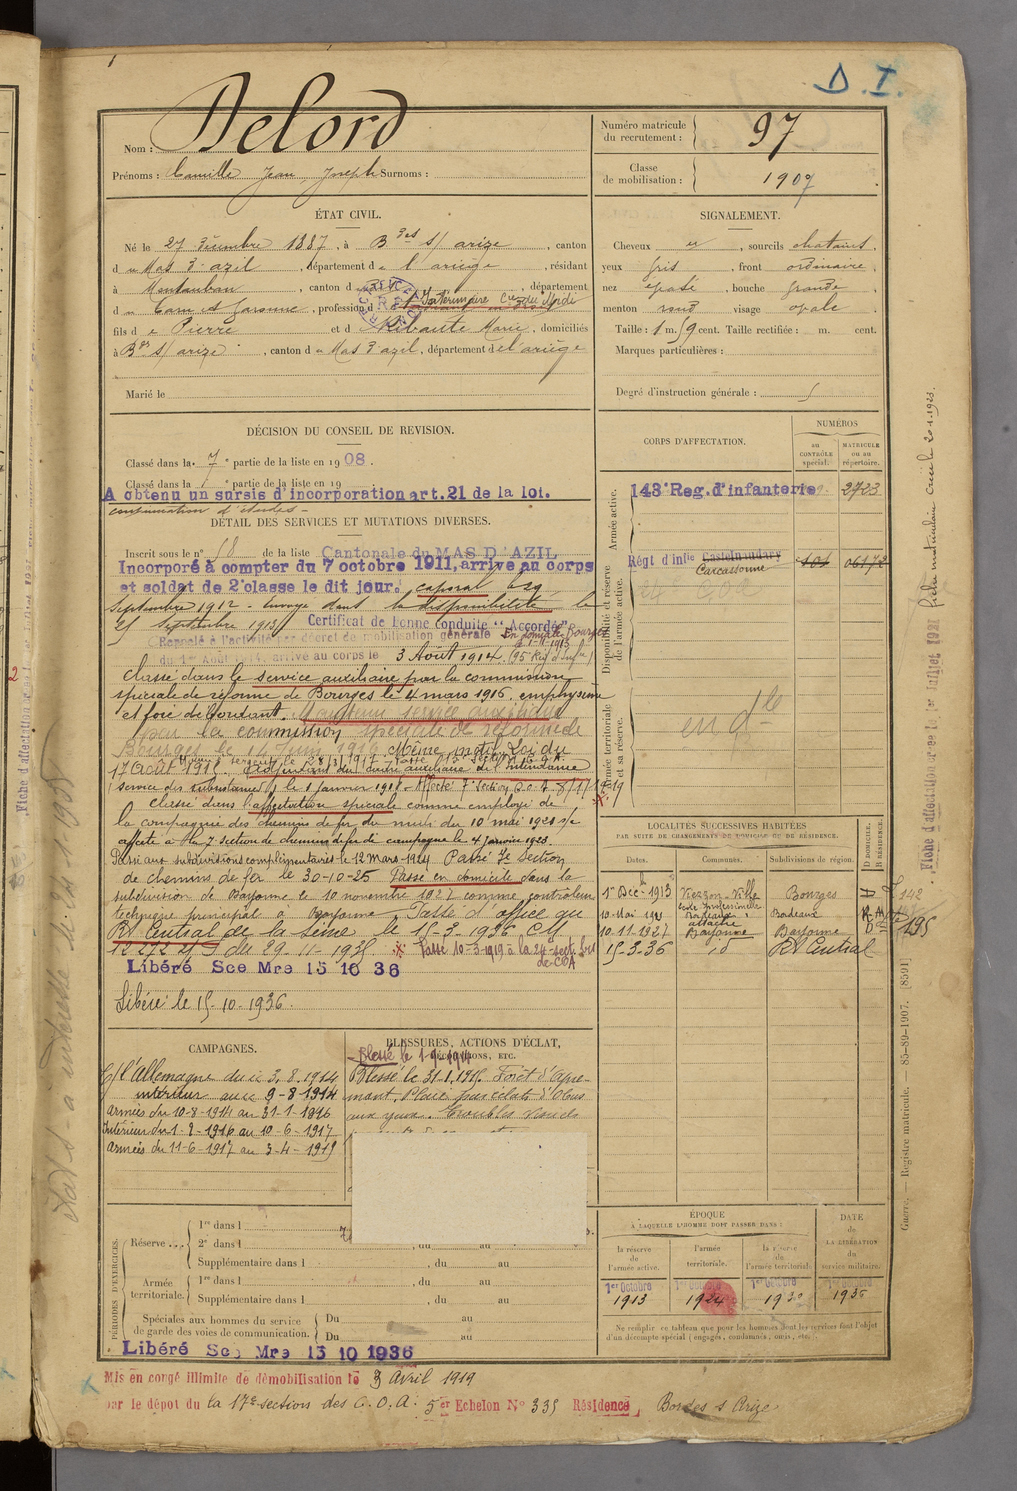 D. I.
Nom : Delord
Prénoms : Camille Jean Joseph Surnoms :
Numéro matricule du recrutement : 97
Classe de mobilisation : 1907
ÉTAT CIVIL.
Né le 27 Décembre 1887, à Bdes s/ arize, canton
du Mas d'azil, département de l'ariège, résidant
à Montauban, canton d , département
d u Tarn et Garonne, profession d Intérimaire Cie du Midi
fils de Pierre et de Ribaute Marie, domiciliés
à Bdes s/ arize, canton du Mas d'azil, département de l'ariège
Marié le
SIGNALEMENT.
Cheveux et, sourcils chatains,
yeux gris, front ordinaire,
nez épaté, bouche grande,
menton rond visage ovale
Taille : 1 m. 59 cent. Taille rectifiée : m. cent.
Marques particulières :
Degré d'instruction générale :
DÉCISION DU CONSEIL DE REVISION.
Classé dans la 7e partie de la liste en 1908.
Classé dans la partie de la liste en 19
A obtenu un sursis d'incorporation art. 21 de la loi.
continuation d'études
DÉTAIL DES SERVICES ET MUTATIONS DIVERSES.
Inscrit sous le n° 58 de la liste Cantonale du MAS D'AZIL
Incorporé à compter du 7 octobre 1911, arrivé au corps
et soldat de 2e classe le dit jour. caporal le 29
Septembre 1912 - Envoyé dans la disponibilité le
25 Septembre 1913 Certificat de bonne conduite "Accordé"
Rappelé à l'activité par décret de mobilisation générale En domicile Bourges
le 1-11-1913
du 1er Août 1914, arrivé au corps le 3 Août 1914. (95 Rég d'Infie)
Classé dans le service auxiliaire par la commission
spéciale de réforme de Bourges le 4 mars 1916. emphysème
et foie débordant. Maintenu service auxiliaire
par la commission spéciale de réforme de
Bourges le 14 Juin 1916 Même motif. Loi du
17 Août 1915. Adjudant du cadre auxiliaire de l'Intendance
(service des subsistances) le 1 janvier 1918.
Classé dans l'affectation spéciale comme employé de
la compagnie des chemins de fer du midi du 10 mai 1921
affecté à la 7 section de chemins de fer de campagne le 4 janvier 1923.
Passé aux subdivisions complémentaires le 12 Mars 1924. Passé 7e Section
de chemins de fer le 30-10-25 Passé en domicile dans la
subdivision de Bayonne le 10 novembre 1927 comme contrôleur
technique principal à Bayonne. Passé d'office au
Rt Central de la Seine le 15-3-1936 CM
12272 du 29-11-1935 Passé 10-3-1919 à la 24e sect.
de COA
Libéré Sce Mre 15 10 36
Libéré le 15-10-1936.
CORPS D'AFFECTATION.
NUMÉROS
au CONTRÔLE spécial.
MATRICULE ou au répertoire.
Armée active.
143e Rég. d'infanterie 2723
Disponibilité et réserve de l'armée active.
Régt d'infie Castelnaudary
Carcassonne 06172
Armée territoriale et sa réserve.
LOCALITÉS SUCCESSIVES HABITÉES
PAR SUITE DE CHANGEMENTS DE DOMICILE OU DE RÉSIDENCE.
Dates. Communes. Subdivisions de région. D DOMICILE. R RÉSIDENCE.
1er Déc 1913 Vierzon-Ville Bourges
école Professionnelle
10-Mai 1921 Bordeaux Bordeaux R
10-11-1927 Bayonne Bayonne D
15-3-36 id Rt Central
CAMPAGNES.
C/ l'Allemagne du 3.8.1914
intérieur au 9-8-1914
armées du 10-8-1914 au 31-1-1916
Intérieur du 1-2-1916 au 10-6-1917
armées du 11-6-1917 au 3-4-1919
BLESSURES, ACTIONS D'ÉCLAT, DÉCORATIONS, ETC.
Blessé le
Blessé le 31.1.1915. Forêt d'apre-
mont. Plaie par éclats d'obus
aux yeux. Troubles visuels
PÉRIODES D'EXERCICES.
Réserve 1re dans l
2e dans l , du au
Supplémentaire dans l , du au
Armée territoriale. 1re dans l , du au
Supplémentaire dans l , du au
Spéciales aux hommes du service de garde des voies de communication. Du au
Du au
Libéré Sce Mre 15 10 1936
ÉPOQUE
À LAQUELLE L'HOMME DOIT PASSER DANS :
la réserve de l'armée active. l'armée territoriale. la réserve de l'armée territoriale.
DATE de LA LIBÉRATION du service militaire.
1er Octobre 1913
1er Octobre 1924
1er Octobre 1930
1er Octobre 1936
Ne remplir ce tableau que pour les hommes dont les services font l'objet d'un décompte spécial (engagés, condamnés, omis, etc.
Mis en congé illimité de démobilisation le 3 Avril 1919
par le dépôt du la 17e section des C.O.A. 5er Echelon N° 335 Résidence, Bordes s Arize
Guerre. — Registre matricule. — 85-89-1907. [8591]